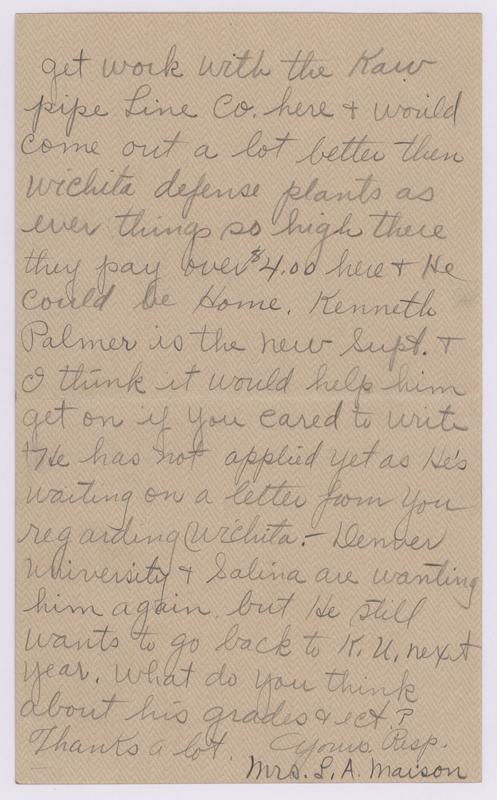 get work with the Kaw
pipe Line Co. here & would
come out a lot better then
Wichita defense plants as
ever things so high there
they pay over $4.00 here & He
could be Home. Kenneth
Palmer is the new Supt. &
I think it would help him
get on if you cared to write
He has not applied yet as He's
waiting on a letter from you
regarding Wichita. - Denver
University & Salina are wanting
him again. but He still
wants to go back to K. U. next
year. What do you think
about his grades & ect?
Thanks a lot. Yours Resp.
Mrs. L. A. Maison